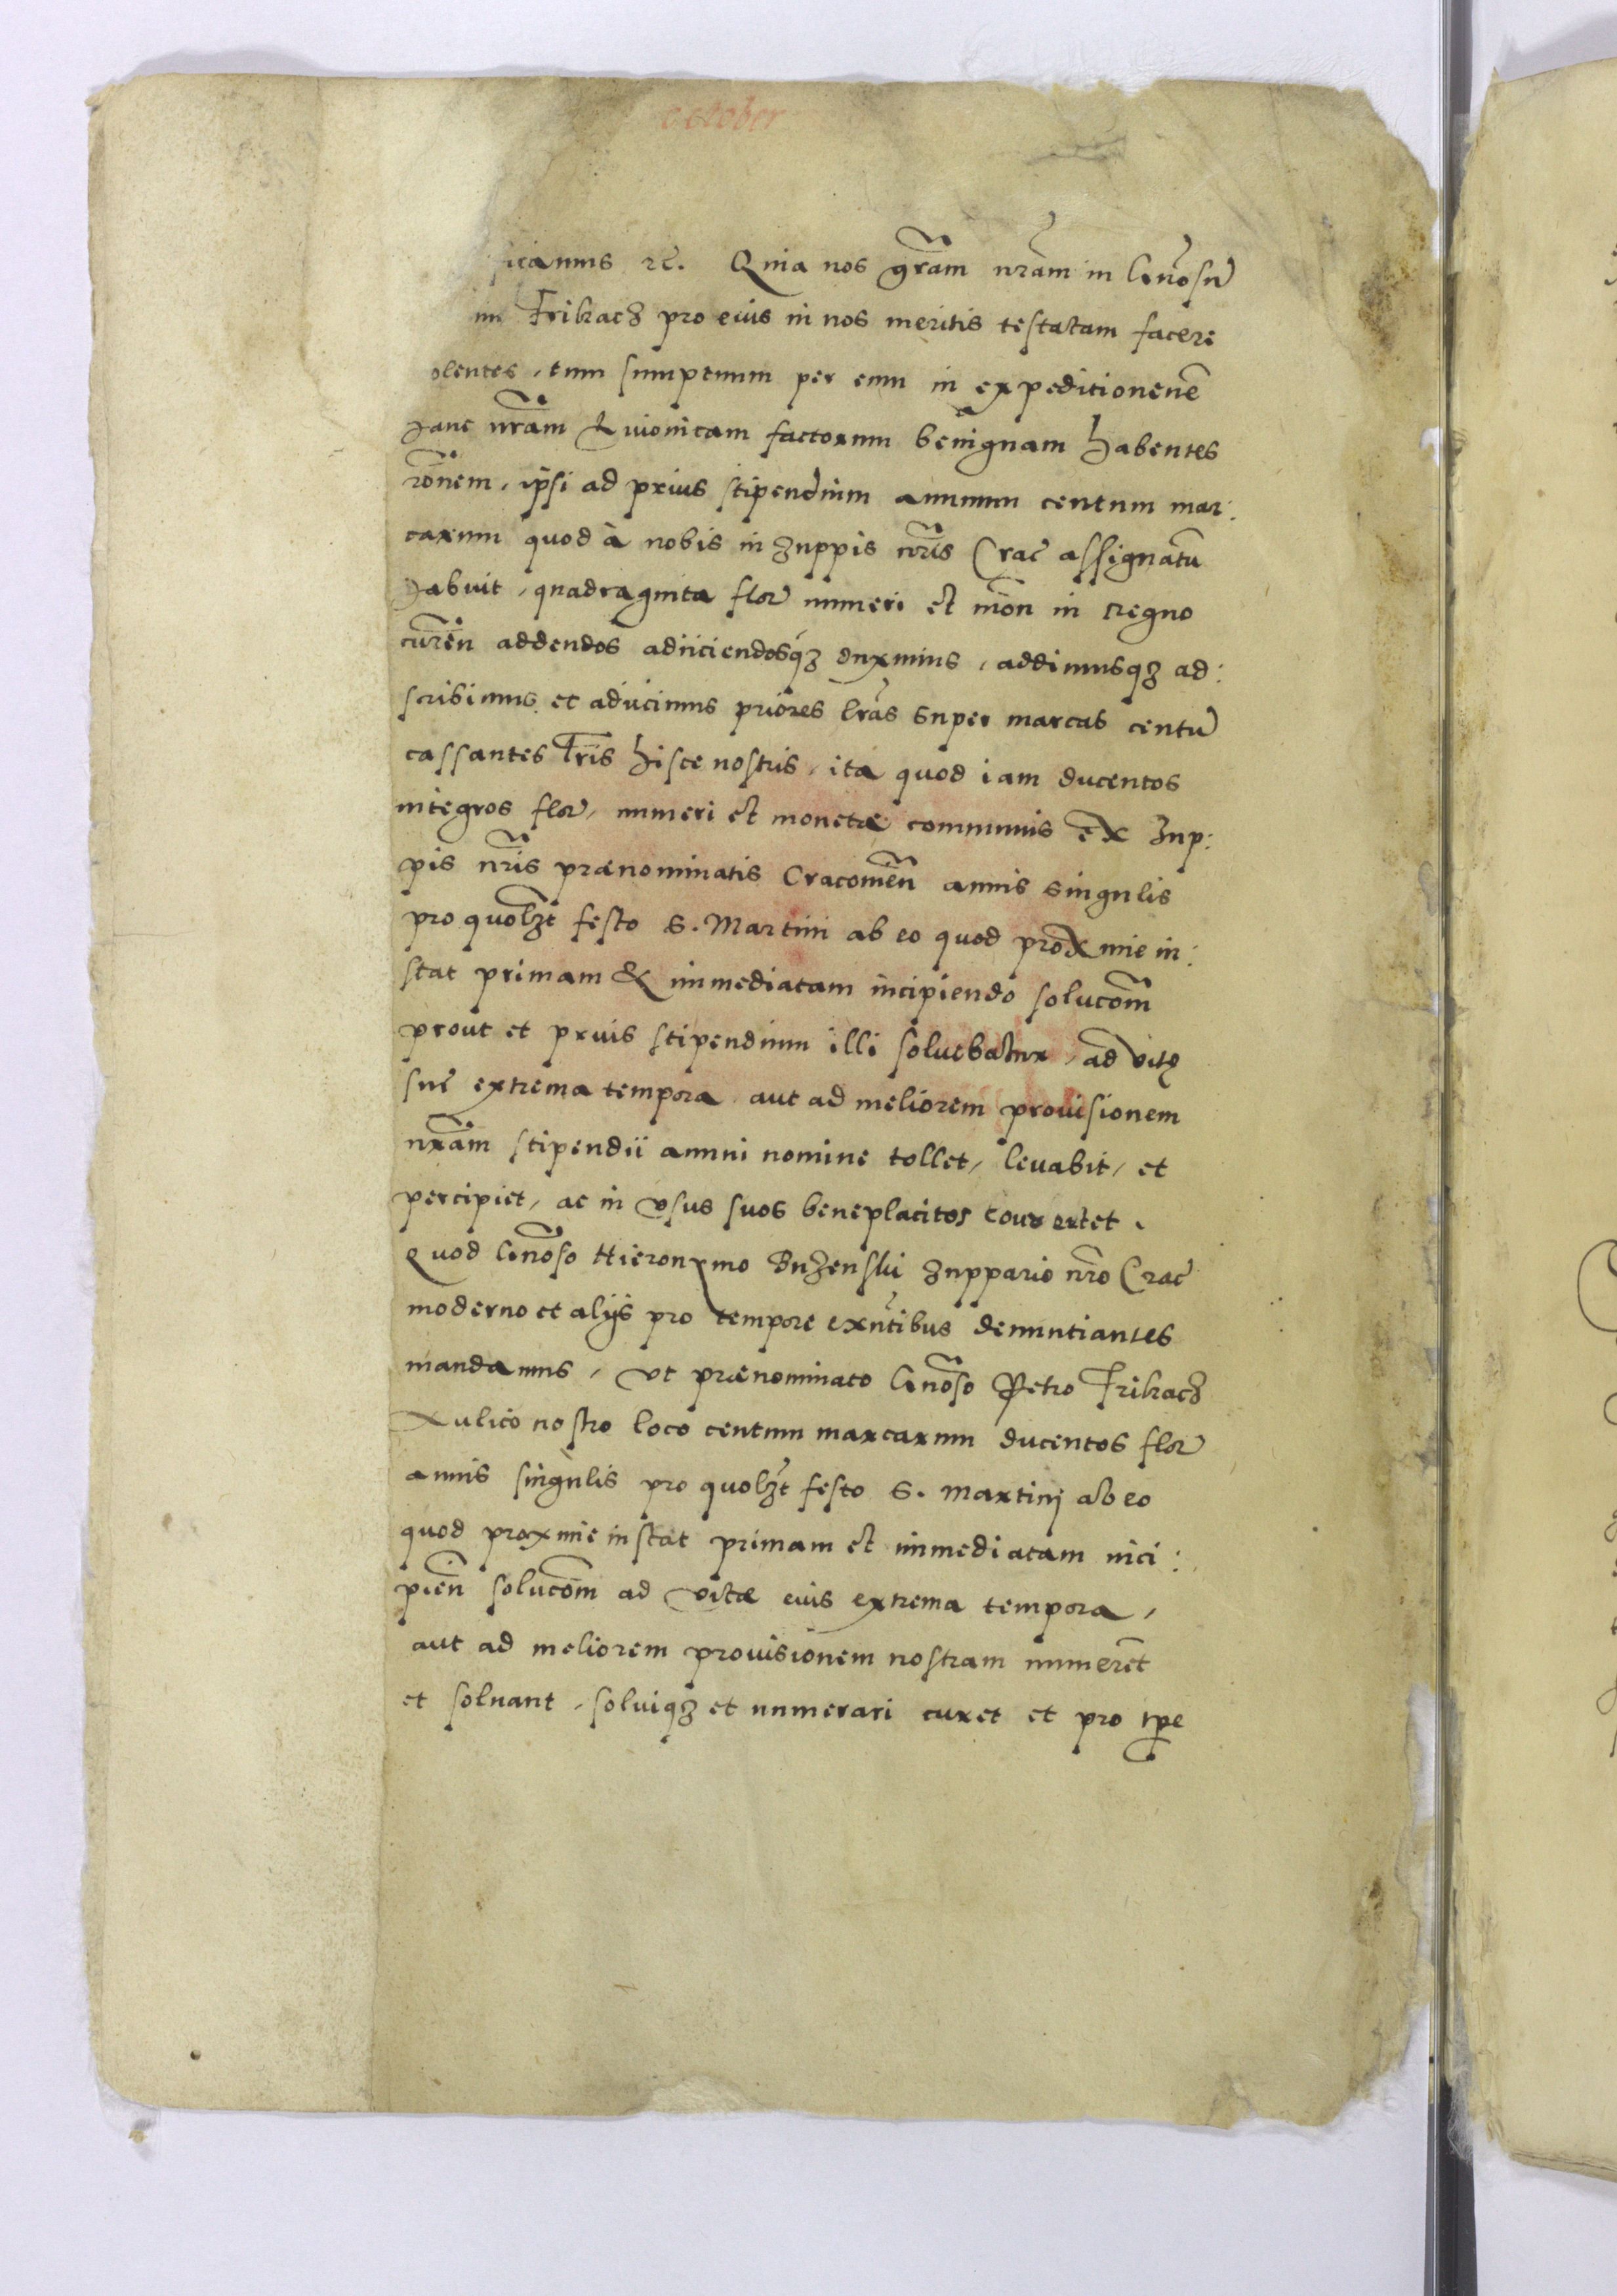 october
sicamus etc. Quia nos grãm nrãm in Genosũ
um Frikacz pro eius in nos meritis testatam facere
olentes, tum sumptuum per eum in expeditionem
hanc nrãm Livonicam factorum benignam habentes
rõnem, ipsi ad prius stipendium annuum centum mar:
carum quod à nobis in zuppis nrĩs Crac assignatũ
habuit, quadraginta flor numeri et mõn in regno
curẽn addendos adiiciendosqz duximus, addimusqz ad:
scribimus et adiicimus priores lrãs super marcas centũ
cassantes lrĩs hisce nostris, ita quod iam ducentos
integros flor, numeri et monetæ communis ex Zup:
pis nrĩs prænominatis Cracovieñ annis singulis
pro quolzt festo S. Martini ab eo quod proxime in:
stat primam & immediatam incipiendo solucõm
prout et prius stipendium illi soluebatur, ad vitę
suę extrema tempora aut ad meliorem prouisionem
nrãm stipendii annui nomine tollet, levabit, et
percipiet, ac in vsus suos beneplacitos convertet.
Quod Genõso Hieronymo Buzenski zuppario nrõ Crac
moderno et alijs pro tempore exñtibus denuntiantes
mandamus, vt prænominato Genõso Petro Frikacz
Aulico nostro loco centum marcarum ducentos flor
annis singulis pro quolzt festo S. Martinj ab eo
quod proxime instat primam et immediatam inci:
pieñ solucõm ad vitæ eius extrema tempora,
aut ad meliorem prouisionem nostram numeret
et soluant, solviqz et numerari curet et pro tpe